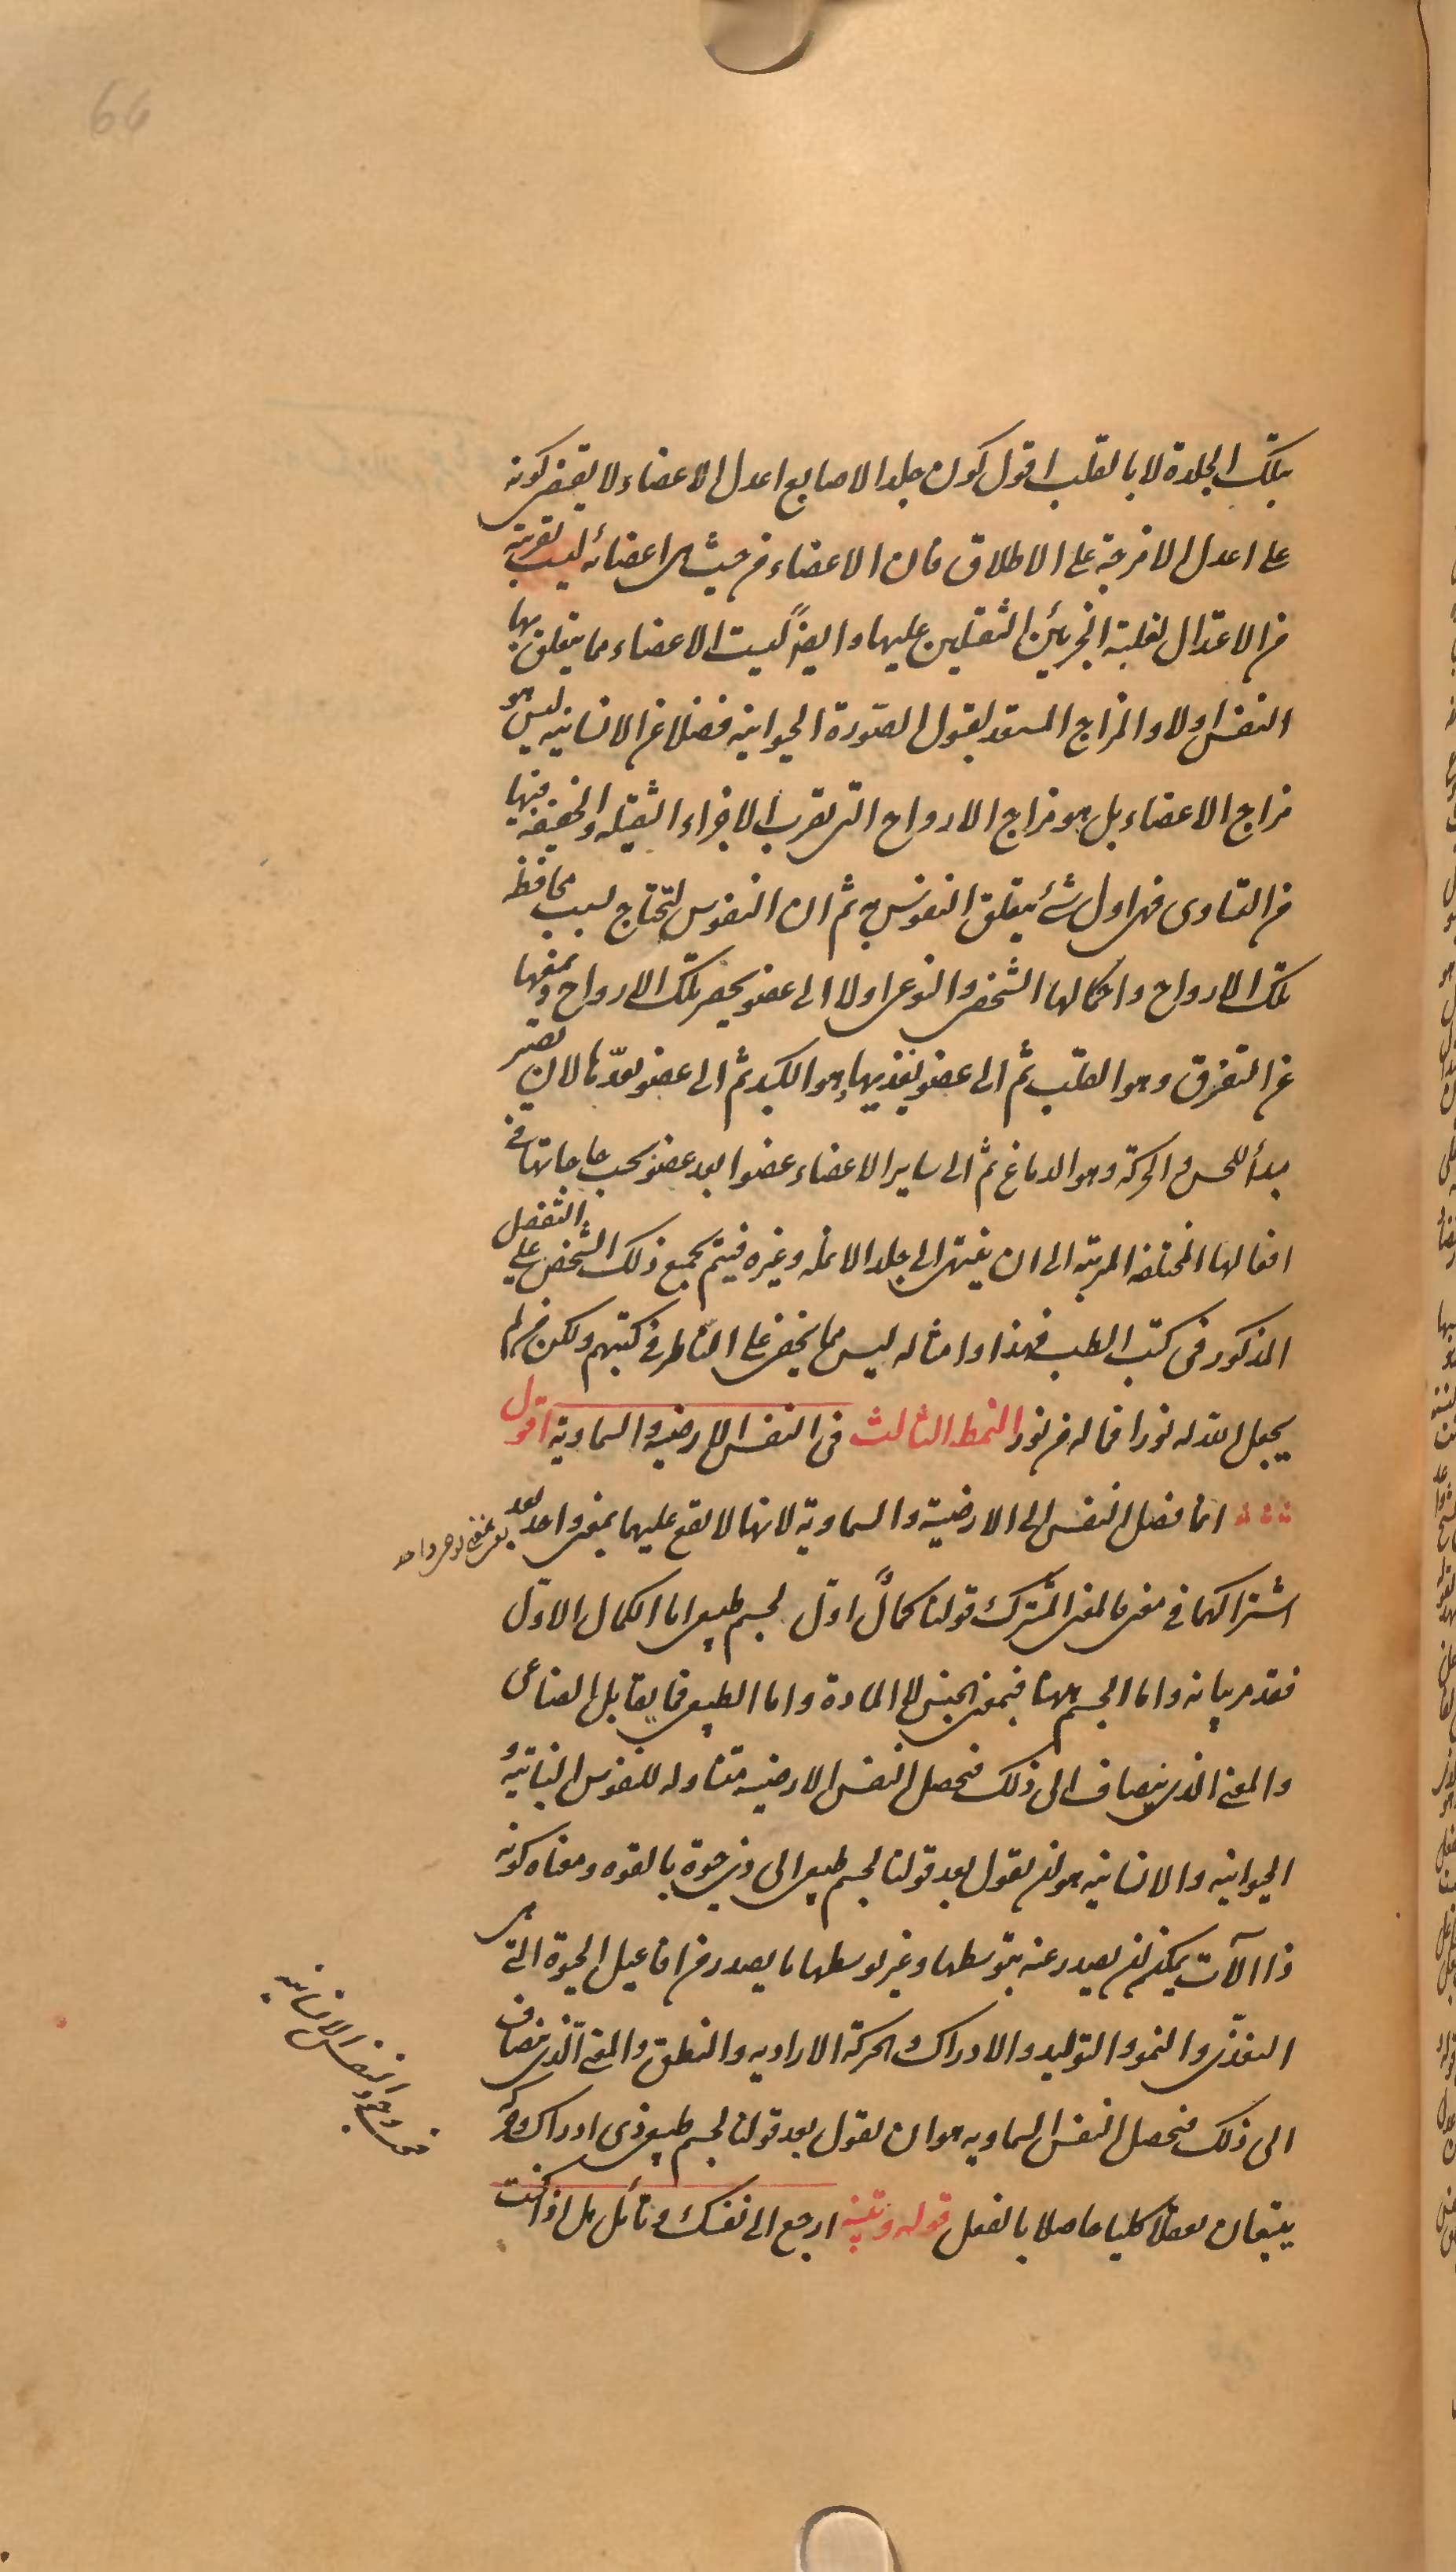 66
بتلك الجلدة لا بالقلب اقول كون جلد الاصابع اعدل الاعضاء لا يقتضى كونه
على اعدل الامزجة على الاطلاق فان الاعضاء من حيث هى اعضاء ليست بقريبة
من الاعتدال لغلبة الجزئين الثقيلين عليها وايضاً ليست الاعضاء مما يتعلق بها
النفس اولا والمزاج المستعد لقبول الصّورة الحيوانيه فضلا عن الانسانيه ليس هو
مزاج الاعضاء بل هو مزاج الارواح التى تقرب الاجزاء الثقيله والخفيفه فيها
من التساوى فهى اول شئ يتعلق النفوس به ثم ان النفوس لتحتاج بسبب محافظة
تلك الارواح واكمالها الشخصى والنوعى اولا الى عضو يحصر تلك الارواح ويمنعها
عن التفرق وهو القلب ثم الى عضو يغذيها وهو الكبد ثم الى عضو يعدّها لان تصير
مبدأ للحس والحركة وهو الدماغ ثم الى ساير الاعضاء عضوا بعد عضو بحسب حاجاتها فى
افعالها المختلفه المرتبه الى ان ينتهى الى جلد الانمله وغيره فيتم بجميع ذلك الشخص على التفصل
المذكور فى كتب الطب فهذا وامثاله ليس مما يخفى على الناظر فى كتبهم ولكن من لم
يجعل الله له نورا فما له من نور النمط الثالث فى النفس الارضيه والسماوية اقول
انما فصل النفس الى الارضية والسماوية لانها لا تقع عليهما بمعنى واحد بعد
اشتراكهما فى معنى فالمعنى المشترك قولنا كمالٌ اوّل لجسم طبيعى اما الكمال الاوّل
فقد مر بيانه واما الجسم ههنا فبمعنى الجنس لا المادة واما الطبيعى فما يقابل الصناعى
والمعنى الذى ينضاف الى ذلك فتحصل النفس الارضيه متناوله للنفوس النباتيه و
الحيوانيه والانسانيه هو ان نقول بعد قولنا لجسم طبيعى الى ذى حيوة بالقوه ومعناه كونه
ذا الآت يمكن ان يصدر عنه بتوسطها وغير توسطها ما يصدر من افاعيل الحيوة التى هى
التغذّى والنمو والتوليد والادراك والحركة الاراديه والنطق والمعنى الّذى ينضاف
الى ذلك فتحصل النفس السماويه هو ان نقول بعد قولنا لجسم طبيعى ذى ادراك وحركة
يتبعان تعقلا كليا حاصلا بالفعل قوله تنبيه ارجع الى نفسك وتأمل هل اذا كنت
وجود النفس الانسانيه